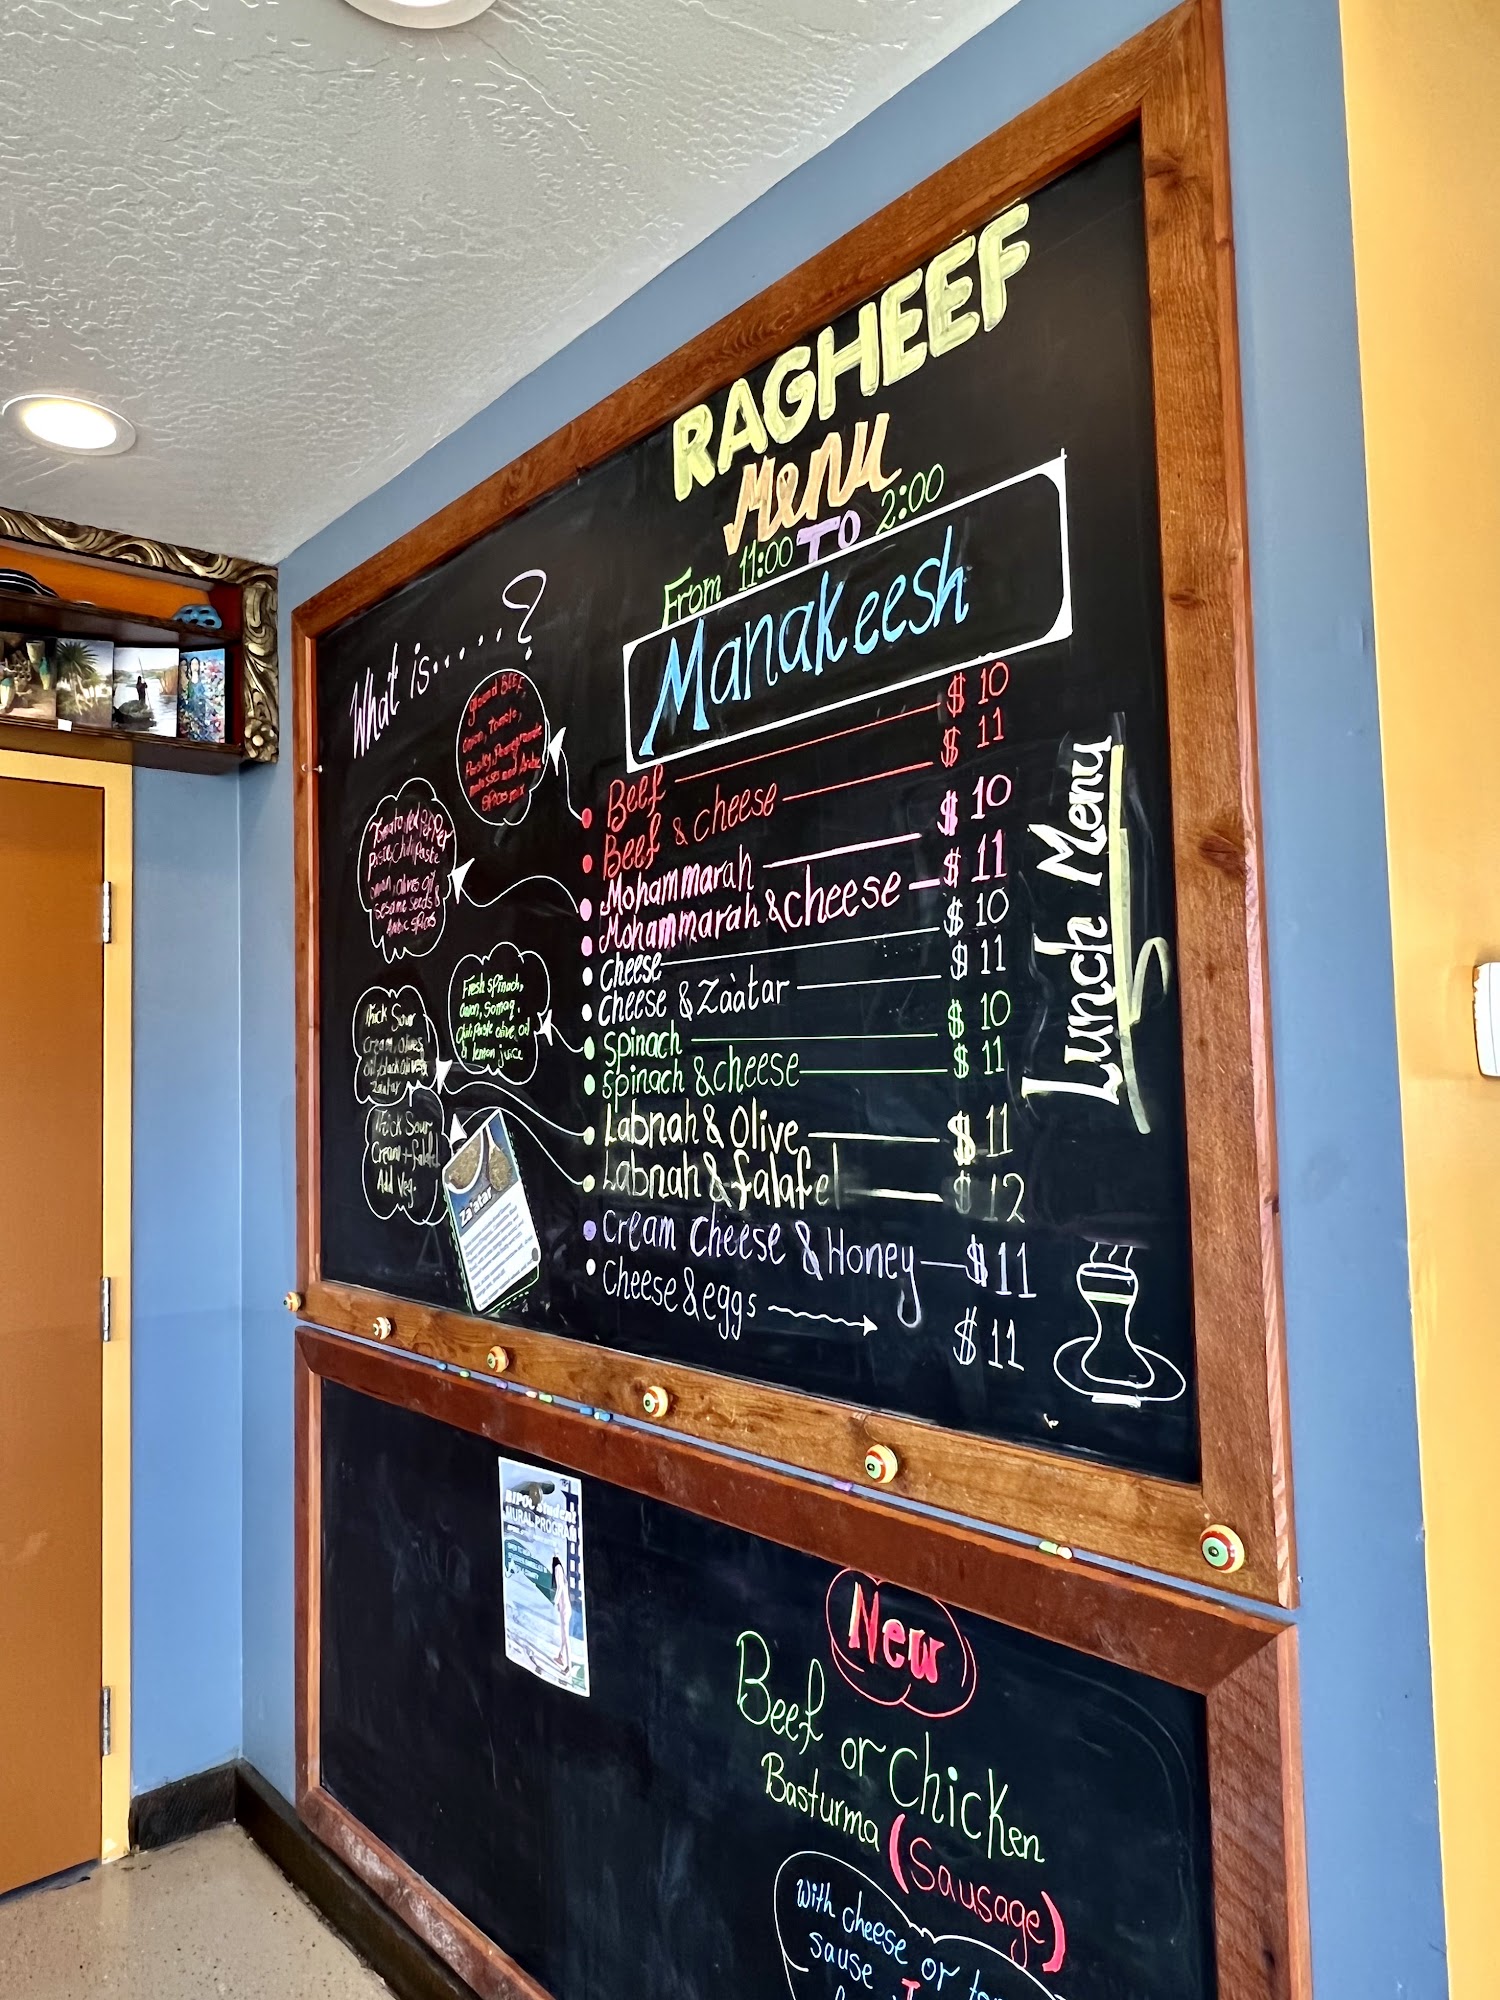 RAGHEEF
Menu
From 11:00 TO 2:00
Manakeesh
What is.....?
Ground BEEF,
onion, Tomato,
Parsley, Pomegranate
molasses and Arabic
spices mix
Tomato, Red PePPer
Paste, Chili Paste
onion, olives oil
sesame seeds &
Arabic spices
Fresh spinach,
onion, Somaq.
Chili Paste olive oil
& lemon juice
Thick Sour
Cream, olives
oil, black olives
Zaatar
Thick Sour
Cream + falafel
Add Veg.
Za'atar
Beef $ 10
Beef & cheese $ 11
Mohammarah $ 10
Mohammarah & cheese $ 11
cheese $ 10
cheese & Zàatar $ 11
spinach $ 10
spinach & cheese $ 11
Labnah & Olive $ 11
Labnah & falafel $ 12
Cream cheese & Honey $ 11
Cheese & eggs $ 11
Lunch Menu
BIPOC Student
MURAL PROGRAM
New
Beef or Chicken
Basturma (Sausage)
with cheese or
sause